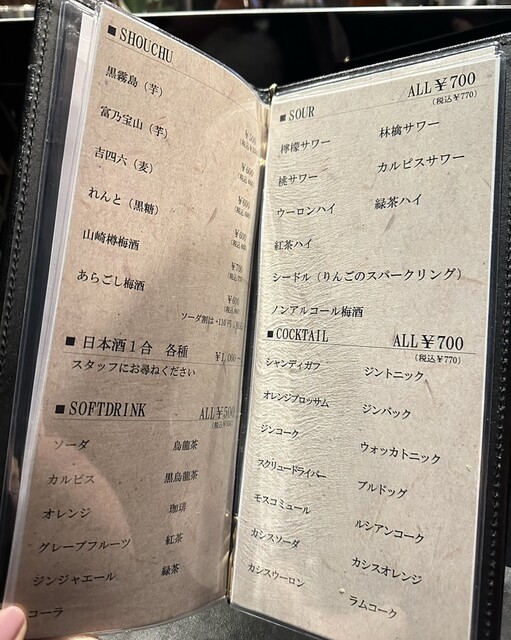 ■ SHOUCHU
黒霧島（芋）
富乃宝山（芋）
吉四六（麦） ¥600
れんと（黒糖） ¥600
山崎樽梅酒 ¥600
あらごし梅酒 ¥700
¥600
ソーダ割は+110円
■ 日本酒1合 各種 ¥1,000~
スタッフにお尋ねください
■ SOFTDRINK ALL¥500
ソーダ 烏龍茶
カルピス 黒烏龍茶
オレンジ 珈琲
グレープフルーツ 紅茶
ジンジャエール 緑茶
コーラ
■ SOUR ALL¥700
(税込¥770)
檸檬サワー 林檎サワー
桃サワー カルピスサワー
ウーロンハイ 緑茶ハイ
紅茶ハイ
シードル（りんごのスパークリング）
ノンアルコール梅酒
■ COCKTAIL ALL¥700
(税込¥770)
シャンディガフ ジントニック
オレンジブロッサム ジンバック
ジンコーク ウォッカトニック
スクリュードライバー ブルドッグ
モスコミュール ルシアンコーク
カシスソーダ カシスオレンジ
カシスウーロン ラムコーク